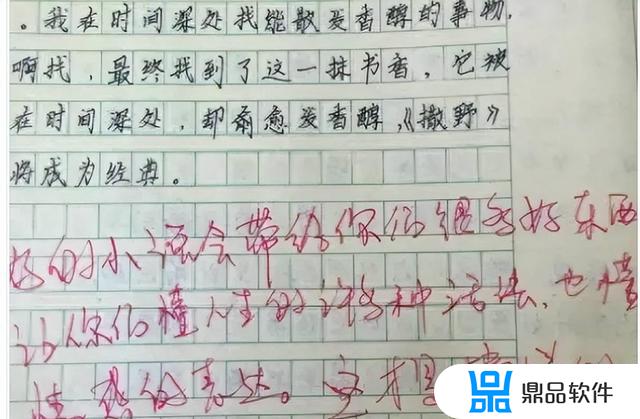 。我在时间深处找能散发香醇的事物,
啊找，最终找到了这一抹书香，它被
在时间深处，却愈发香醇，《撒野》
将成为经典。
好的小说会带给你们很多好东西
让你们懂人生的许多种活法，也懂
情感的表达。
鼎品软件